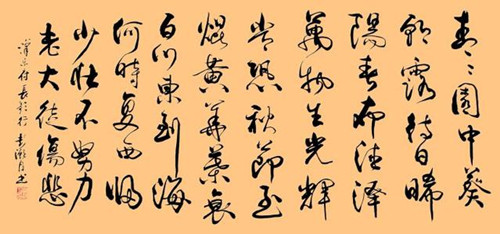 青々園中葵
朝露待日晞
陽春布德澤
萬物生光輝
常恐秋節至
焜黃華葉衰
百川東到海
何時復西歸
少壯不努力
老大徒傷悲
長歌行